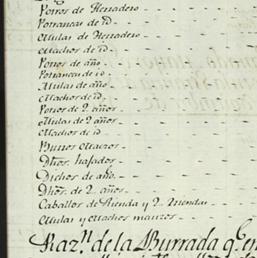 Potros de Herradero
Potrancas de id
Mulas de Herradero
Machos de id
Potros de año
Potrancas de id
Mulas de año
Machos de id
Potros de 2 años
Mulas de 2 años
Machos de id
Burros Manaderos
Dhos. hechores
Dichos de año
Dhos. de 2 años
Caballos de Rienda y 2 Riendas
Mulas y Machos mansos
Raz.n de la Burrada q.e en